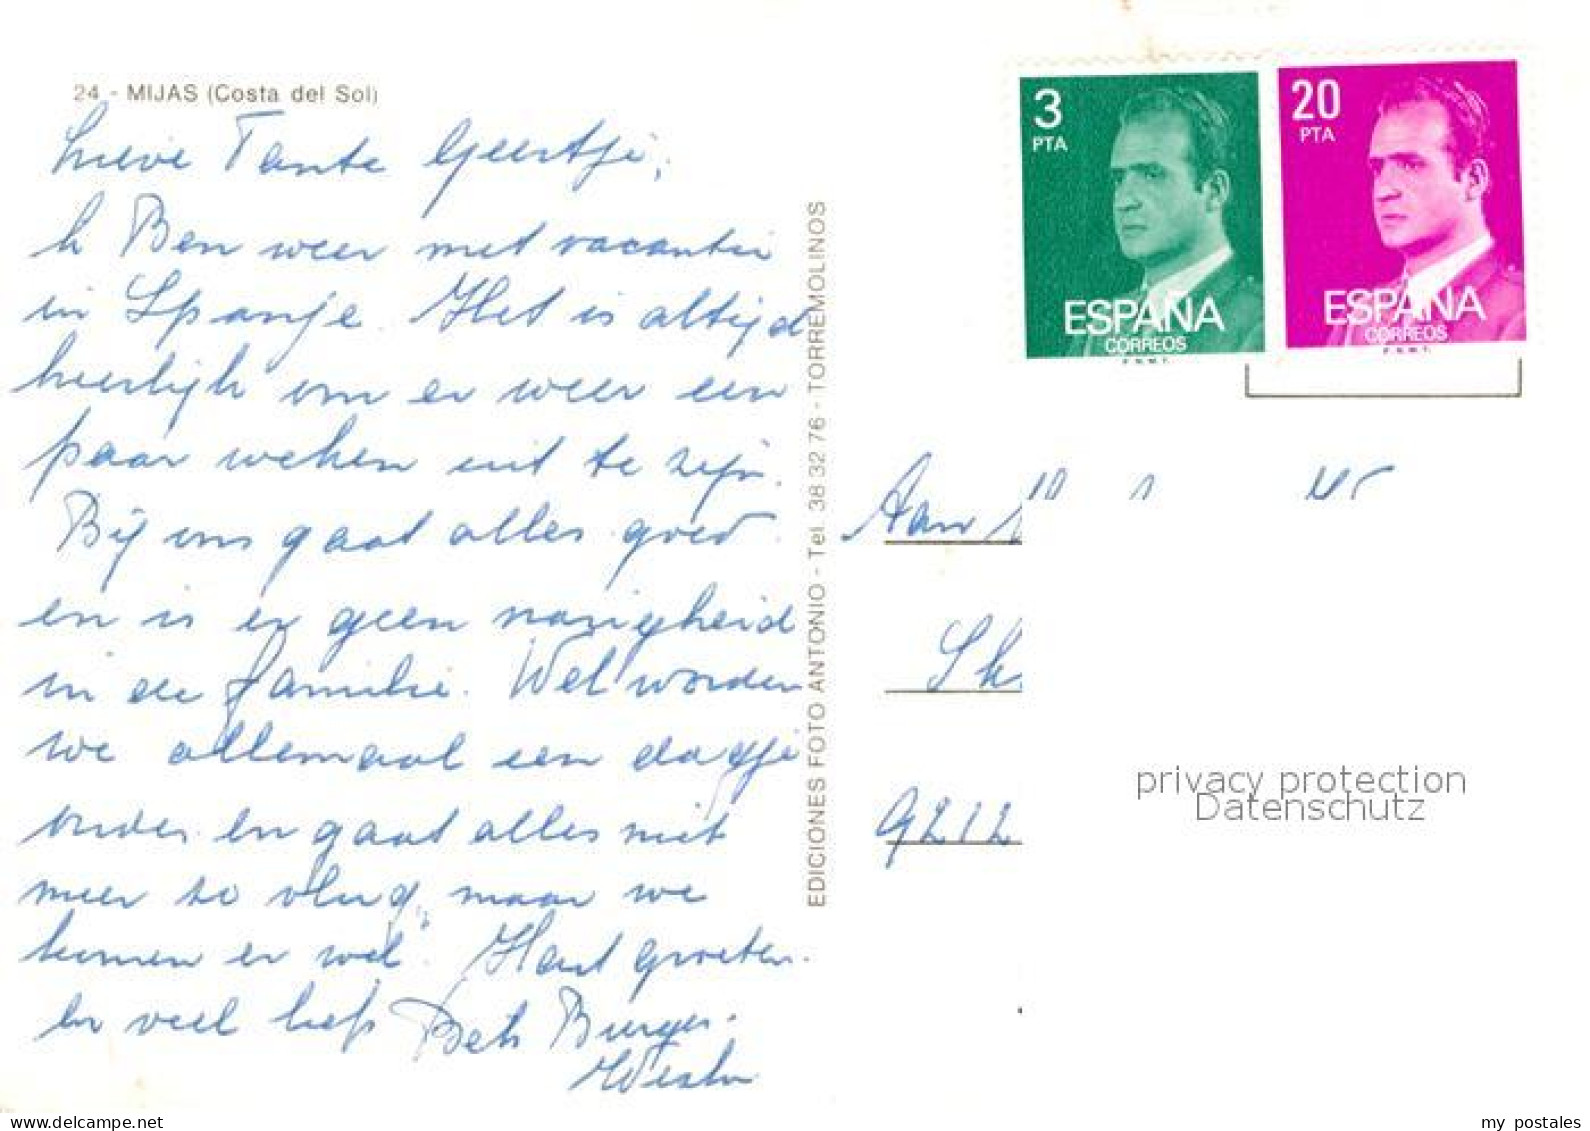 24 - MIJAS (Costa del Sol)
Lieve Tante Geertje,
Ik Ben weer met vacantie
in Spanje. Het is altijd
heerlijk om er weer een
paar weken uit te zijn.
Bij ons gaat alles goed
en is er geen narigheid
in de familie. Wel worden
we allemaal een dagje
ouder en gaat alles niet
meer zo vlug, maar we
komen er wel. Hart groeten.
en veel liefs Bets Burger.
EDICIONES FOTO ANTONIO - Tel 38 32 76 - TORREMOLINOS
3
PTA
ESPAÑA
CORREOS
F.N.M.T.
20
PTA
ESPAÑA
CORREOS
F.N.M.T.
Aan
9212
privacy protection
Datenschutz
delcampe.net
my postales